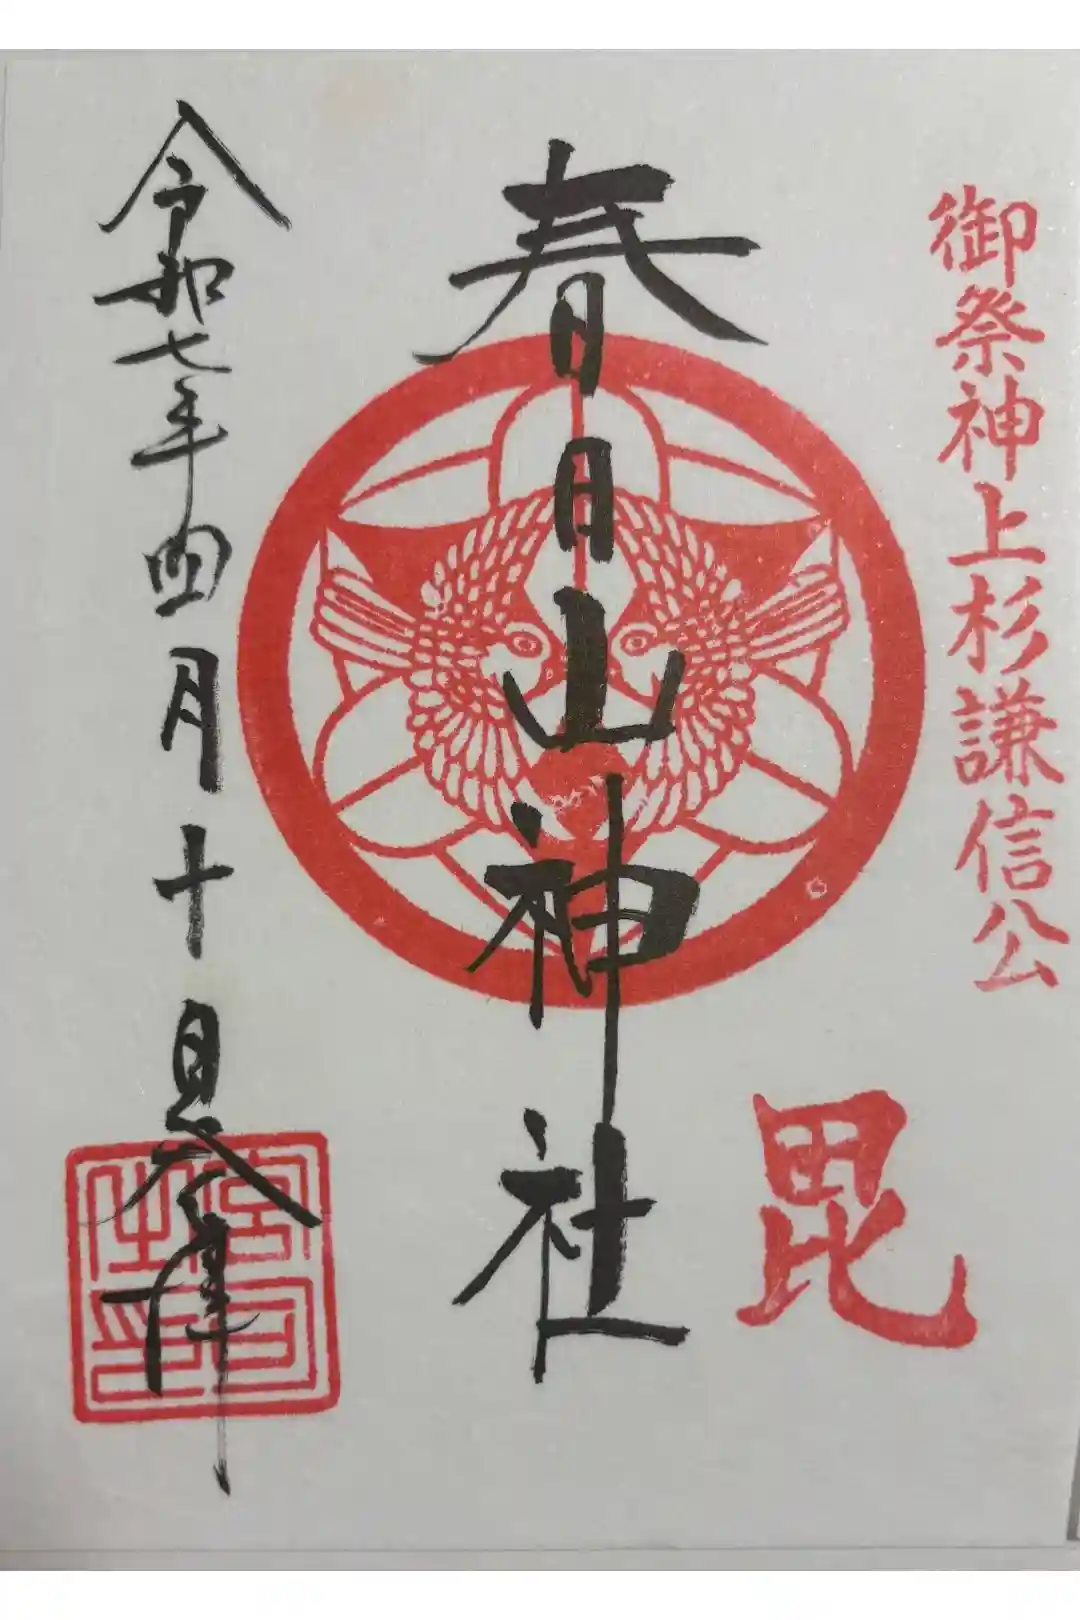 御祭神上杉謙信公
毘
春日山神社
令和七年四月十日参拝
宮司
之印